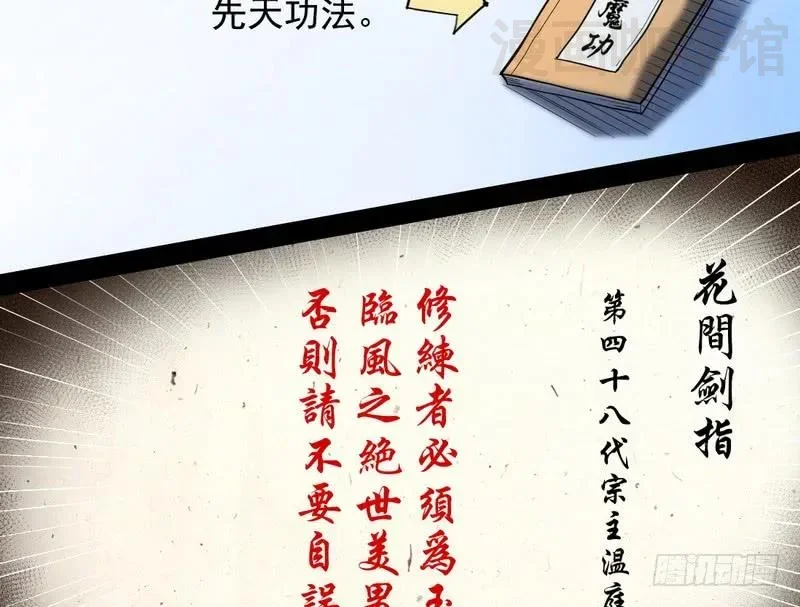 先天功法。
魔功
漫画
馆
花間劍指
第四十八代宗主溫庭
修練者必須為玉
臨風之絕世美男
否則請不要自誤
腾讯动漫